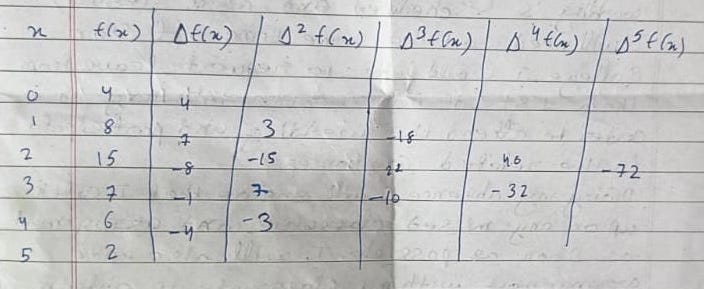 x f(x) Δf(x) Δ² f(x) Δ³f(x) Δ⁴f(x) Δ⁵f(x)
0 4
4
1 8 3
7 -18
2 15 -15 40
-8 22 -72
3 7 7 -32
-1 -10
4 6 -3
-4
5 2